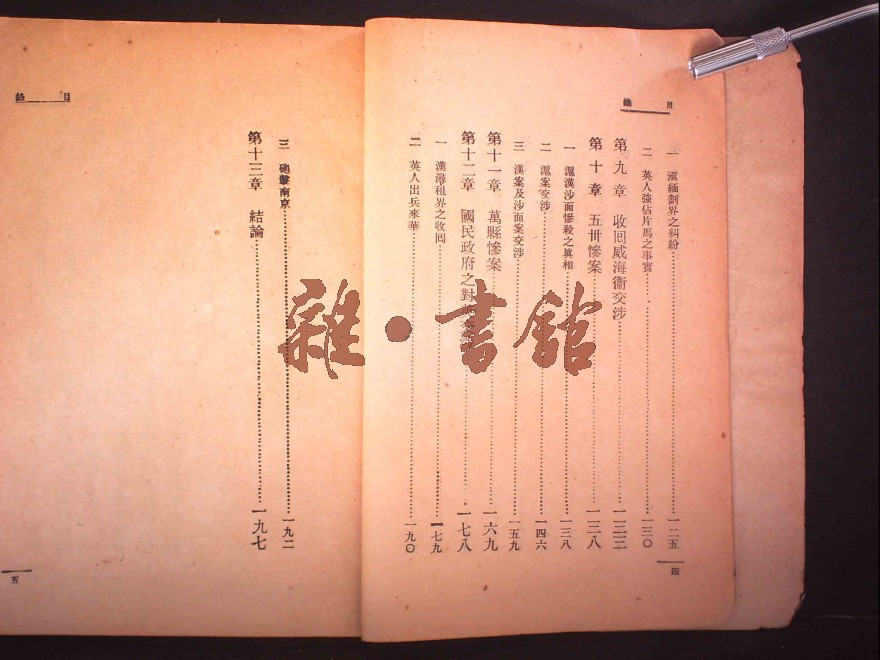 目錄
一 滇緬劃界之糾紛 一二五
二 英人強佔片馬之事實 一三〇
第九章 收回威海衞交涉 一三三
第十章 五卅慘案 一三八
一 滬漢沙面慘殺之眞相 一三八
二 滬案交涉 一四六
三 漢案及沙面案交涉 一五九
第十一章 萬縣慘案 一六九
第十二章 國民政府之對 一七八
一 漢潯租界之收回 一七九
二 英人出兵來華 一九〇
四
目錄
三 砲擊南京 一九二
第十三章 結論 一九七
五
雜•書館